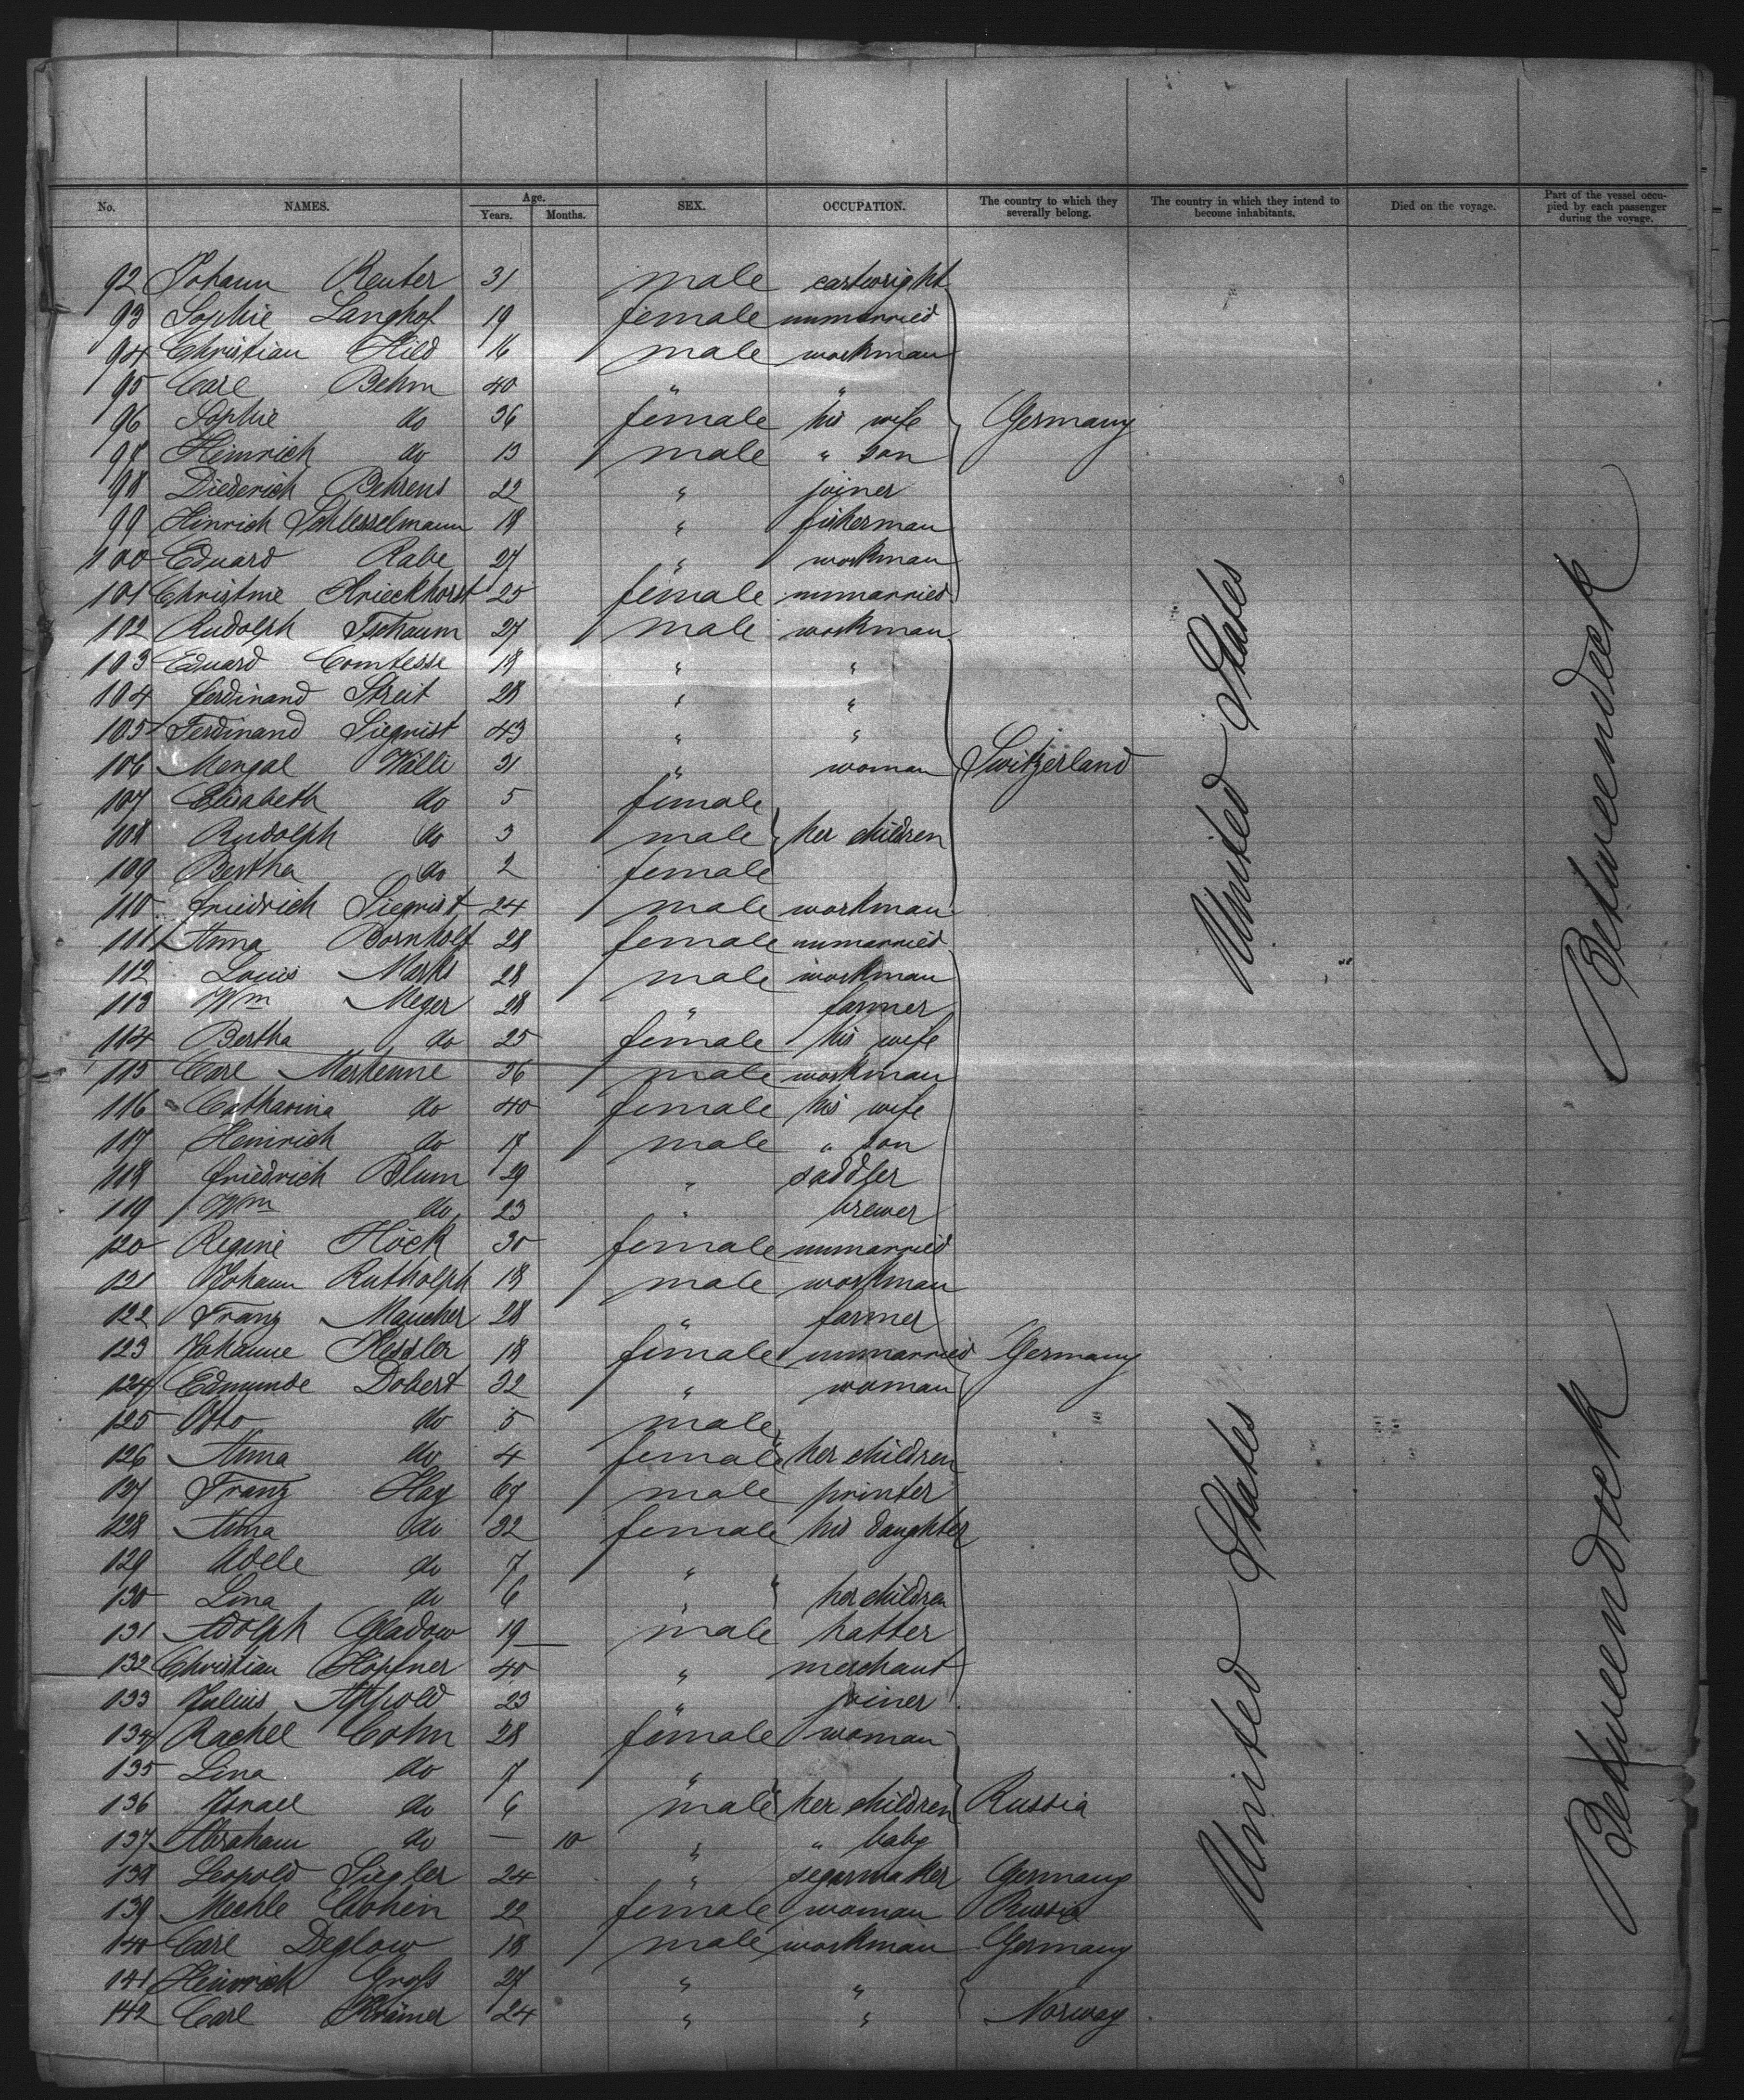 No. NAMES. Age. Years. Months. SEX. OCCUPATION. The country to which they severally belong. The country in which they intend to become inhabitants. Died on the voyage. Part of the vessel occupied by each passenger during the voyage.
92 Johann Reuter 31 male cartwright
93 Sophie Langhof 19 female unmarried
94 Christian Hild 16 male workman
95 Carl Behm 40 " "
96 Sophie do 36 female his wife Germany
97 Heinrich do 13 male " son
98 Diederich Behrens 22 " joiner
99 Hinrich Schlesselmann 18 " fisherman
100 Eduard Rabe 27 " workman
101 Christine Krieckhorst 25 female unmarried
102 Rudolph Tschaum 27 male workman
103 Eduard Comtesse 18 " "
104 Ferdinand Streit 28 " "
105 Ferdinand Siegrist 43 " "
106 Mengal Wälli 31 " woman Switzerland
107 Elisabeth do 5 female
108 Rudolph do 3 male her children
109 Bertha do 2 female
110 Friedrich Siegrist 24 male workman
111 Anna Bornholt 28 female unmarried
112 Louis Marks 28 male workman
113 Wm Meger 28 " farmer
114 Bertha do 25 female his wife
115 Carl 36 male workman
116 Catharina do 40 female his wife
117 Heinrich do 17 male " son
118 Friedrich Blum 29 " saddler
119 Wm do 23 " brewer
120 Regine Höck 30 female unmarried
121 Johann Rutholph 18 male workman
122 Franz Maucher 28 " farmer
123 Johanne Kessler 18 female unmarried Germany
124 Edmunde Dobert 32 " woman
125 Otto do 5 male
126 Anna do 4 female her children
127 Franz Hay 67 male printer
128 Anna do 32 female his daughter
129 Adele do 7 "
130 Lina do 6 " her children
131 Adolph Gladow 19 male hatter
132 Christian Höpfner 40 " merchant
133 Julius Appold 23 " joiner
134 Rachel Cohn 28 female woman
135 Lina do 7 "
136 Israel do 6 male her children Russia
137 Abraham do — 10 " " baby
138 Leopold Siegler 24 " segarmaker Germany
139 Mechle Cohein 22 female woman Russia
140 Carl Deglow 18 male workman Germany
141 Heinrich Groß 27 " "
142 Carl Krämer 24 " " Norway
United States
Betweendeck
United States
Betweendeck